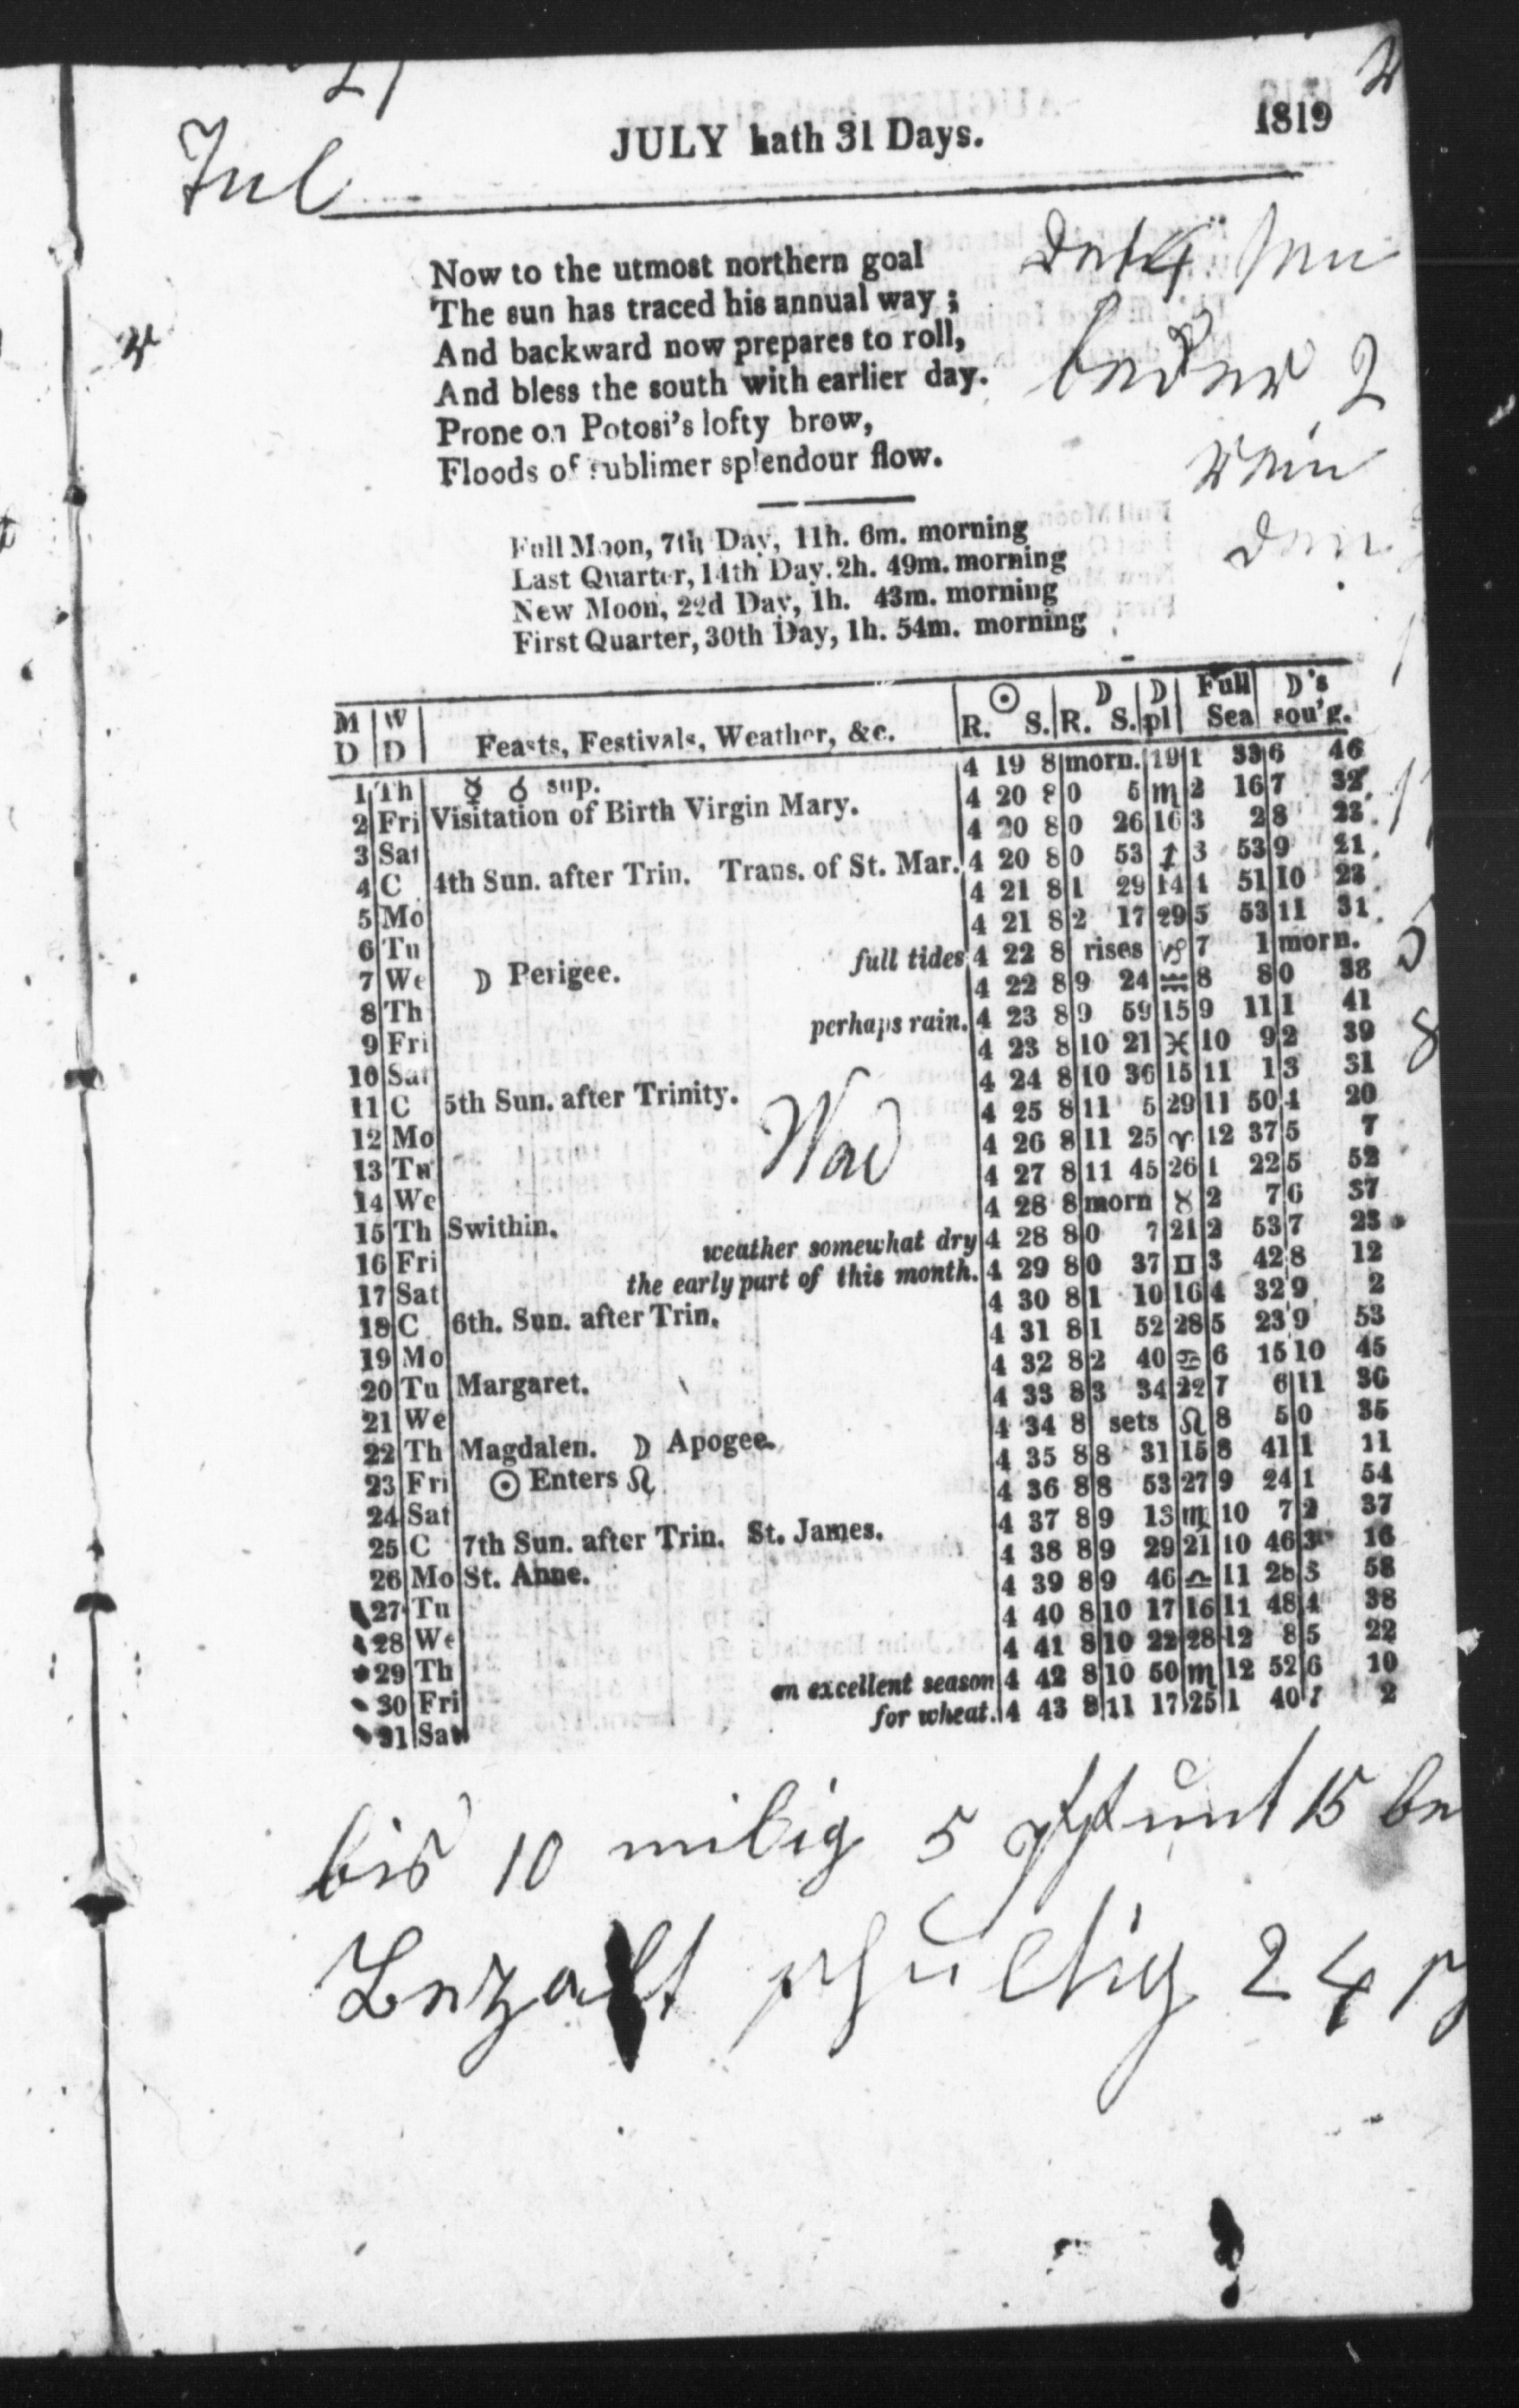 JULY hath 31 Days. 1819
Jul
Now to the utmost northern goal
The sun has traced his annual way ;
And backward now prepares to roll,
And bless the south with earlier day.
Prone on Potosi's lofty brow,
Floods of sublimer splendour flow.
Full Moon, 7th Day, 11h. 6m. morning
Last Quarter, 14th Day. 2h. 49m. morning
New Moon, 22d Day, 1h. 43m. morning
First Quarter, 30th Day, 1h. 54m. morning
M D | W D | Feasts, Festivals, Weather, &c. | ☉ R. S. | ☽ R. S. | ☽ pl | Full Sea | ☽'s sou'g.
1 Th ☿ ☌ sup. 4 19 8 morn. 19 1 33 6 46
2 Fri Visitation of Birth Virgin Mary. 4 20 8 0 5 ♏ 2 16 7 32
3 Sat 4 20 8 0 26 16 3 2 8 23
4 C 4th Sun. after Trin. Trans. of St. Mar. 4 20 8 0 53 ♐ 3 53 9 21
5 Mo 4 21 8 1 29 14 4 51 10 23
6 Tu 4 21 8 2 17 29 5 53 11 31
7 We ☽ Perigee. full tides 4 22 8 rises ♑ 7 1 morn.
8 Th 4 22 8 9 24 ♒ 8 8 0 38
9 Fri perhaps rain. 4 23 8 9 59 15 9 11 1 41
10 Sat 4 23 8 10 21 ♓ 10 9 2 39
11 C 5th Sun. after Trinity. 4 24 8 10 36 15 11 1 3 31
12 Mo 4 25 8 11 5 29 11 50 4 20
13 Tu 4 26 8 11 25 ♈ 12 37 5 7
14 We 4 27 8 11 45 26 1 22 5 52
15 Th Swithin. 4 28 8 morn ♉ 2 7 6 37
16 Fri weather somewhat dry 4 28 8 0 7 21 2 53 7 23
17 Sat the early part of this month. 4 29 8 0 37 ♊ 3 42 8 12
18 C 6th. Sun. after Trin. 4 30 8 1 10 16 4 32 9 2
19 Mo 4 31 8 1 52 28 5 23 9 53
20 Tu Margaret. 4 32 8 2 40 ♋ 6 15 10 45
21 We 4 33 8 3 34 22 7 6 11 36
22 Th Magdalen. ☽ Apogee. 4 34 8 sets ♌ 8 5 0 35
23 Fri ☉ Enters ♌ 4 35 8 8 31 15 8 41 1 11
24 Sat 4 36 8 8 53 27 9 24 1 54
25 C 7th Sun. after Trin. St. James. 4 37 8 9 13 ♍ 10 7 2 37
26 Mo St. Anne. 4 38 8 9 29 21 10 46 3 16
27 Tu 4 39 8 9 46 ♎ 11 28 3 58
28 We 4 40 8 10 17 16 11 48 4 38
29 Th 4 41 8 10 22 28 12 8 5 22
30 Fri an excellent season 4 42 8 10 50 ♏ 12 52 6 10
31 Sat for wheat. 4 43 8 11 17 25 1 40 7 2
bis 10 5 15
Bezalt 24